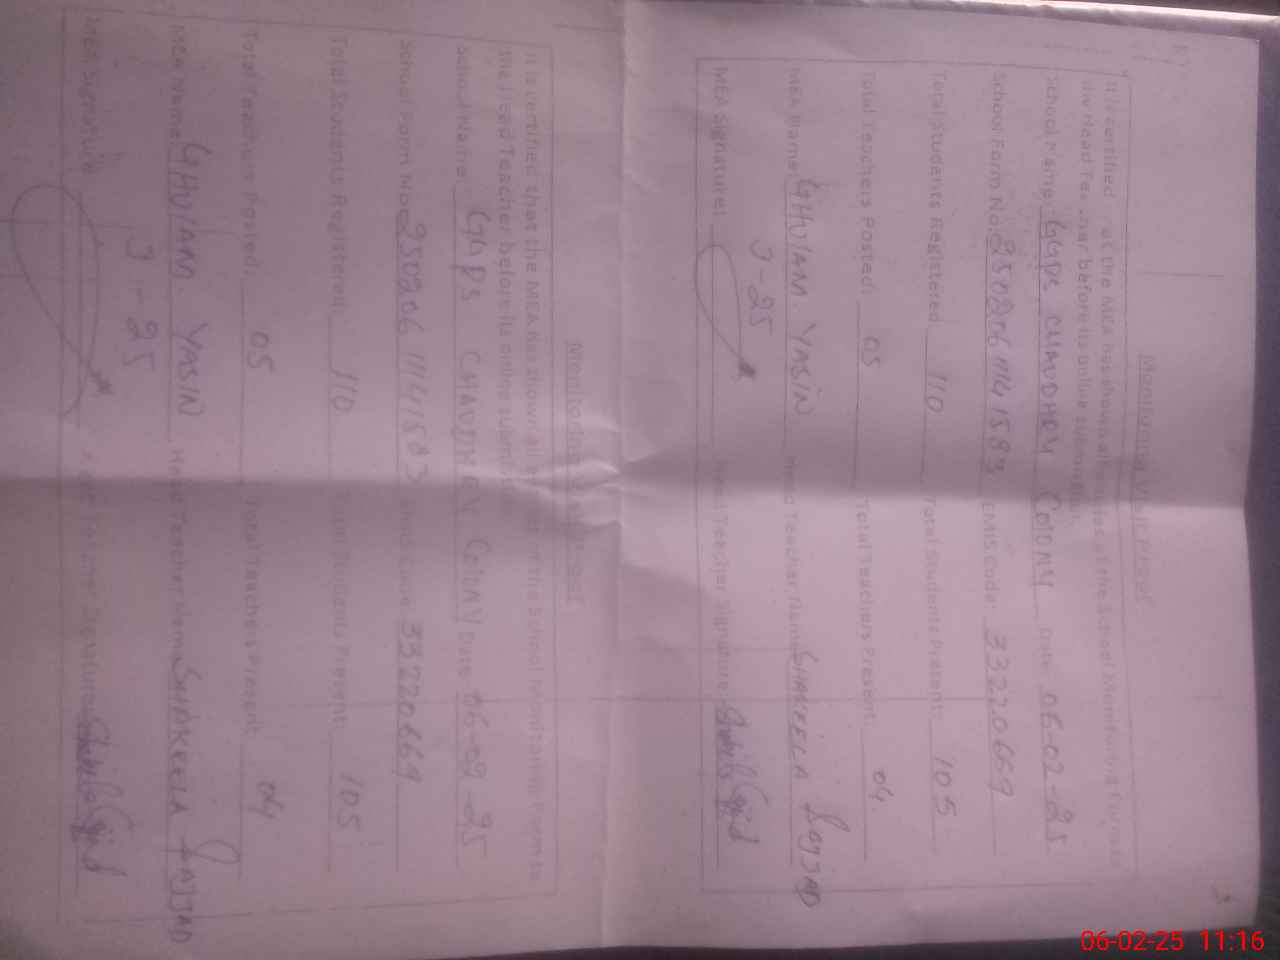 Monitoring Visit Proof
It is certified that the MEA has shown all entries of the School Monitoring Form to
the Head Teacher before its online submission.
School Name: GGPS CHAUDHRY COLONY Date 06-02-25
School Form No: 25020611141583 EMIS Code: 33220669
Total Students Registered 110 Total Students Present: 105
Total Teachers Posted: 05 Total Teachers Present: 04
MEA Name: GHULAM YASIN Head Teacher Name SHAKEELA SAJJAD
J-25
MEA Signature: Head Teacher Signature:
Monitoring Visit Proof
It is certified that the MEA has shown all entries of the School Monitoring Form to
the Head Teacher before its online submission.
School Name: GGPS CHAUDHRY COLONY Date 06-02-25
School Form No: 25020611141583 EMIS Code 33220669
Total Students Registered: 110 Total Students Present: 105
Total Teachers Posted: 05 Total Teachers Present 04
MEA Name: GHULAM YASIN Head Teacher Name SHAKEELA SAJJAD
J-25
MEA Signature Head Teacher Signature:
06-02-25 11:16